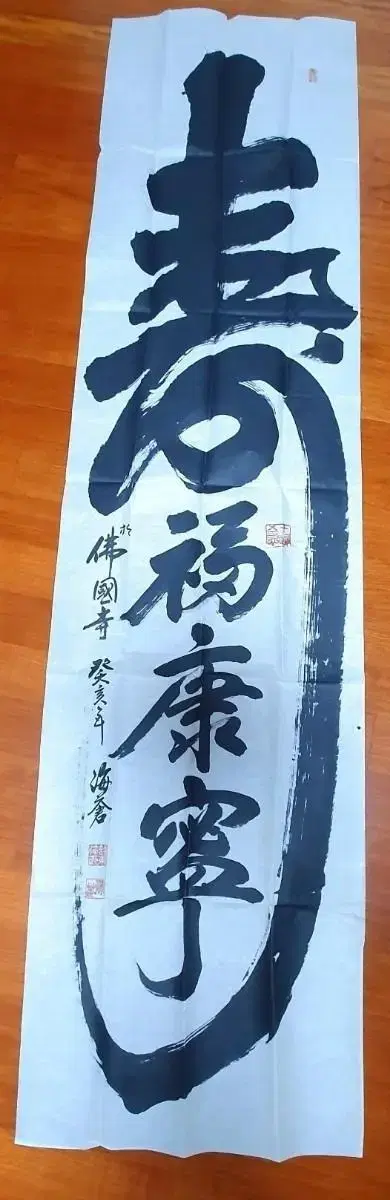 壽福康寧
於佛國寺 癸亥年 海蒼